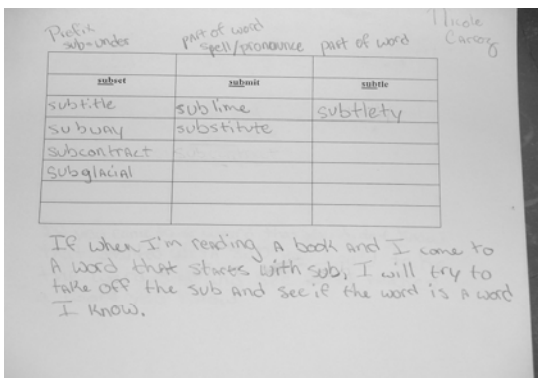 Prefix part of word Nicole
sub=under spell/pronounce part of word
subset submit subtle
subtitle sublime subtlety
subway substitute
subcontract
subglacial
If when I'm reading a book and I come to
A word that starts with sub, I will try to
take off the sub and see if the word is a word
I know.